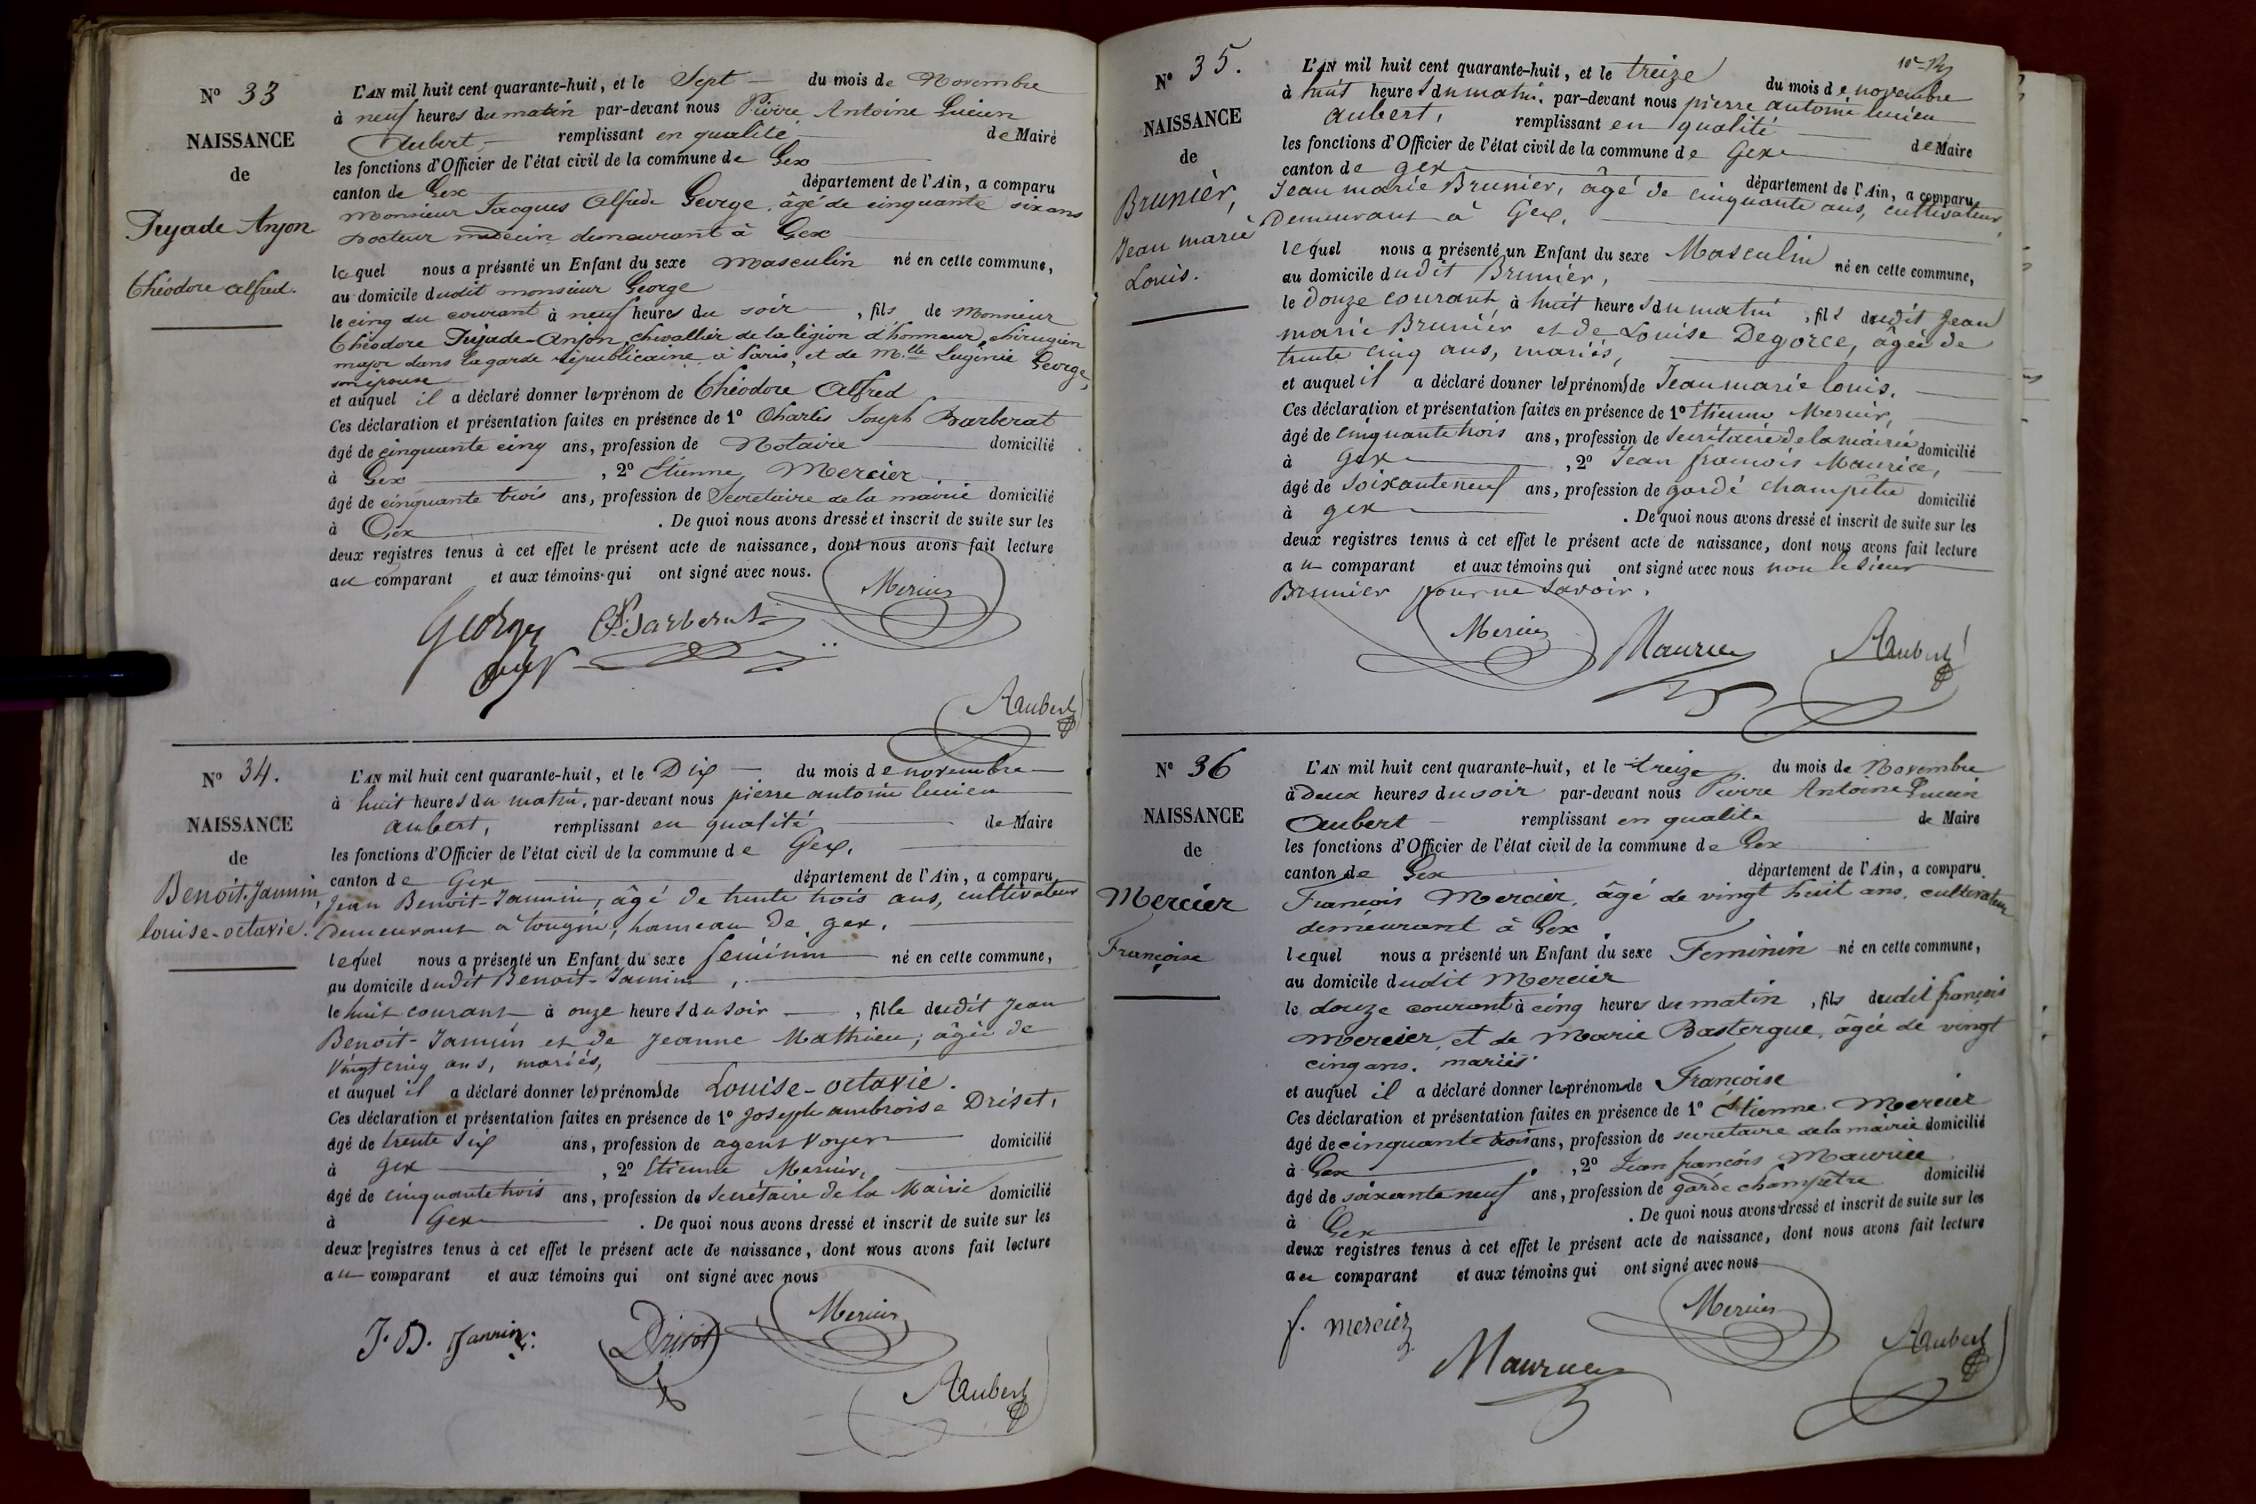 N° 33
NAISSANCE
de
Pujade Anjon
théodore alfred.
L'AN mil huit cent quarante-huit, et le Sept du mois de Novembre
à neuf heures du matin par-devant nous Pierre Antoine Lucien
Aubert, remplissant en qualité de Maire
les fonctions d'Officier de l'état civil de la commune de Gex
canton de Gex département de l'Ain, a comparu
Monsieur Jacques Alfred George, âgé de cinquante six ans
Docteur médecin demeurant à Gex
lequel nous a présenté un Enfant du sexe masculin né en cette commune,
au domicile dudit monsieur George
le cinq du courant à neuf heures du soir, fils de Monsieur
théodore Pujade-Anjon, chevallier de la légion d'honneur, chirugien
major dans la garde républicaine à Paris, et de M.lle Eugénie George,
son épouse
et auquel il a déclaré donner le prénom de théodore Alfred
Ces déclaration et présentation faites en présence de 1° Charles Joseph Barberat
âgé de cinquante cinq ans, profession de Notaire domicilié
à Gex, 2° Etienne Mercier
âgé de cinquante trois ans, profession de Secretaire de la mairie domicilié
à Gex. De quoi nous avons dressé et inscrit de suite sur les
deux registres tenus à cet effet le présent acte de naissance, dont nous avons fait lecture
au comparant et aux témoins qui ont signé avec nous.
Mercier
George Barberat
Aubert
N° 34.
NAISSANCE
de
Benoit-Jannin,
louise-octavie.
L'AN mil huit cent quarante-huit, et le Dix du mois de novembre
à huit heures du matin, par-devant nous pierre antoine lucien
aubert, remplissant en qualité de Maire
les fonctions d'Officier de l'état civil de la commune de Gex,
canton de Gex département de l'Ain, a comparu
Jean Benoit-Jannin, âgé de trente trois ans, cultivateur
demeurant à tougin, hameau de gex,
lequel nous a présenté un Enfant du sexe féminin né en cette commune,
au domicile dudit Benoit-Jannin,
le huit courant à onze heures du soir, fille dudit Jean
Benoit-Jannin et de Jeanne Mathieu, âgée de
vingt cinq ans, mariés,
et auquel il a déclaré donner les prénoms de Louise-octavie.
Ces déclaration et présentation faites en présence de 1° Joseph ambroise Driset,
âgé de trente six ans, profession de agent voyer domicilié
à gex, 2° Etienne Mercier,
âgé de cinquante trois ans, profession de Secrétaire de la Mairie domicilié
à Gex. De quoi nous avons dressé et inscrit de suite sur les
deux registres tenus à cet effet le présent acte de naissance, dont nous avons fait lecture
au comparant et aux témoins qui ont signé avec nous
J. B. Jannin. Mercier
Aubert
N° 35.
NAISSANCE
de
Brunier,
Jean marie
Louis.
L'AN mil huit cent quarante-huit, et le treize du mois de novembre
à huit heures du matin, par-devant nous pierre antoine lucien
aubert, remplissant en qualité de Maire
les fonctions d'Officier de l'état civil de la commune de Gex
canton de gex département de l'Ain, a comparu
Jean marie Brunier, âgé de cinquante ans, cultivateur,
Demeurant à Gex,
lequel nous a présenté un Enfant du sexe Masculin né en cette commune,
au domicile dudit Brunier,
le douze courant à huit heures du matin, fils dudit Jean
marie Brunier et de Louise Degorce, âgée de
trente cinq ans, mariés,
et auquel il a déclaré donner les prénoms de Jean marie louis.
Ces déclaration et présentation faites en présence de 1° Etienne Mercier,
âgé de cinquante trois ans, profession de Secrétaire de la mairie domicilié
à gex, 2° Jean francois Maurice,
âgé de soixante neuf ans, profession de garde champêtre domicilié
à gex. De quoi nous avons dressé et inscrit de suite sur les
deux registres tenus à cet effet le présent acte de naissance, dont nous avons fait lecture
au comparant et aux témoins qui ont signé avec nous non le sieur
Brunier pour ne savoir.
Mercier Maurice Aubert
N° 36
NAISSANCE
de
Mercier
Françoise
L'AN mil huit cent quarante-huit, et le treize du mois de Novembre
à deux heures du soir par-devant nous Pierre Antoine Lucien
Aubert remplissant en qualité de Maire
les fonctions d'Officier de l'état civil de la commune de Gex
canton de Gex département de l'Ain, a comparu
François Mercier, âgé de vingt huit ans, cultivateur
demeurant à Gex
lequel nous a présenté un Enfant du sexe Feminin né en cette commune,
au domicile dudit Mercier
le douze courant à cinq heures du matin, fils dudit françois
Mercier, et de Marie Bastergue, âgée de vingt
cinq ans. mariés
et auquel il a déclaré donner le prénom de Françoise
Ces déclaration et présentation faites en présence de 1° Etienne Mercier
âgé de cinquante trois ans, profession de secretaire de la mairie domicilié
à Gex, 2° Jean francois Maurice
âgé de soixante neuf ans, profession de garde champêtre domicilié
à Gex. De quoi nous avons dressé et inscrit de suite sur les
deux registres tenus à cet effet le présent acte de naissance, dont nous avons fait lecture
au comparant et aux témoins qui ont signé avec nous
f. mercier Mercier
Maurice Aubert